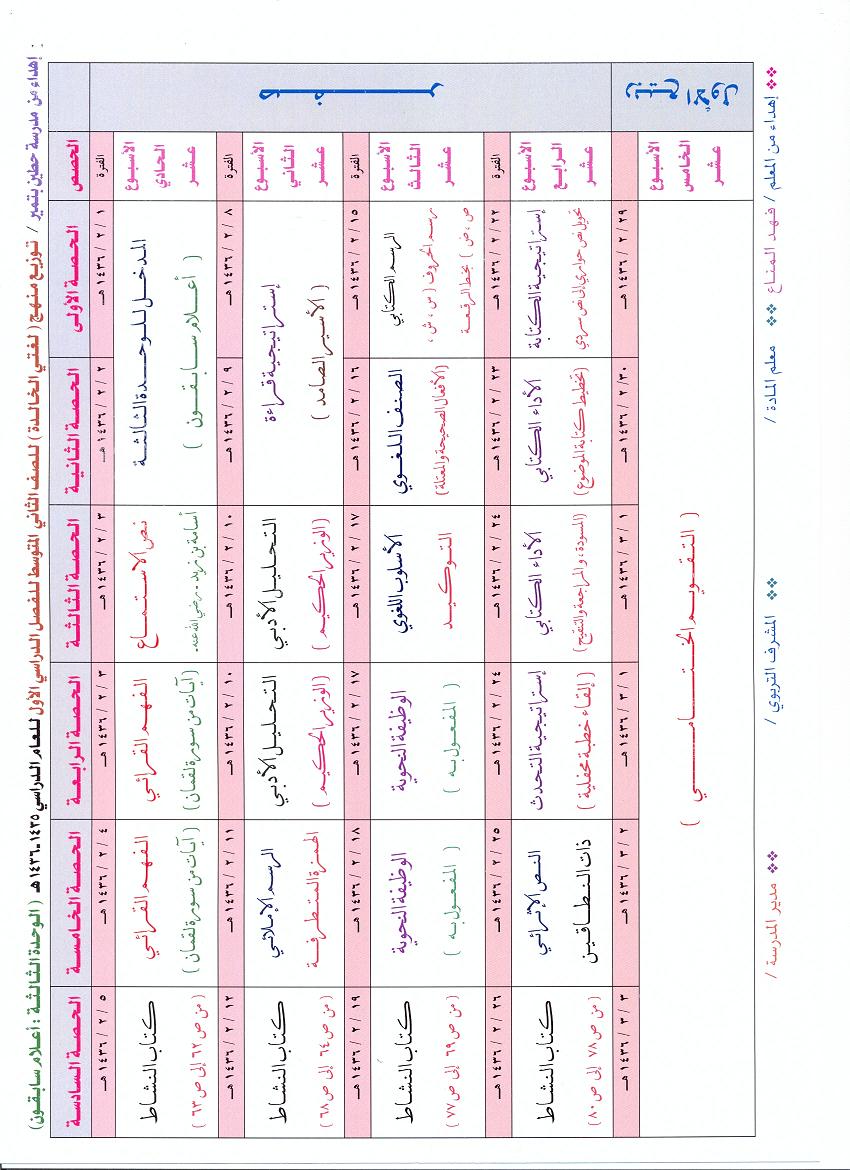 إهداء من مدرسة حطين بتمير / توزيع منهج ( لغتي الخالدة ) للصف الثاني المتوسط للفصل الدراسي الأول للعام الدراسي ١٤٣٥-١٤٣٦هـ ( الوحدة الثالثة : أعلام سابقون )
الحصص الحصة الأولى الحصة الثانية الحصة الثالثة الحصة الرابعة الحصة الخامسة الحصة السادسة
صفر
الفترة ١ / ٢ / ١٤٣٦ هـ ٢ / ٢ / ١٤٣٦ هـ ٣ / ٢ / ١٤٣٦ هـ ٣ / ٢ / ١٤٣٦ هـ ٤ / ٢ / ١٤٣٦ هـ ٥ / ٢ / ١٤٣٦ هـ
الأسبوع الحادي عشر
المدخل للوحدة الثالثة
( أعلام سابقون )
نص الاستماع
أسامة بن زيد - رضي الله عنه -
الفهم القرائي
( آيات من سورة لقمان )
الفهم القرائي
( آيات من سورة لقمان )
كتاب النشاط
( من ص ٦٢ إلى ص ٦٣ )
الفترة ٨ / ٢ / ١٤٣٦ هـ ٩ / ٢ / ١٤٣٦ هـ ١٠ / ٢ / ١٤٣٦ هـ ١٠ / ٢ / ١٤٣٦ هـ ١١ / ٢ / ١٤٣٦ هـ ١٢ / ٢ / ١٤٣٦ هـ
الأسبوع الثاني عشر
إستراتيجية قراءة
( الأسير الصامد )
التحليل الأدبي
( الوزير الحكيم )
التحليل الأدبي
( الوزير الحكيم )
الرسم الإملائي
الهمزة المتطرفة
كتاب النشاط
( من ص ٦٤ إلى ص ٦٨ )
الفترة ١٥ / ٢ / ١٤٣٦ هـ ١٦ / ٢ / ١٤٣٦ هـ ١٧ / ٢ / ١٤٣٦ هـ ١٧ / ٢ / ١٤٣٦ هـ ١٨ / ٢ / ١٤٣٦ هـ ١٩ / ٢ / ١٤٣٦ هـ
الأسبوع الثالث عشر
الرسم الكتابي
رسم الحروف ( س ، ش ،
ص ، ض ) بخط الرقعة
الصنف اللغوي
( الأفعال الصحيحة والمعتلة )
الأسلوب اللغوي
التوكيد
الوظيفة النحوية
( المفعول به )
الوظيفة النحوية
( المفعول به )
كتاب النشاط
( من ص ٦٩ إلى ص ٧٧ )
الفترة ٢٢ / ٢ / ١٤٣٦ هـ ٢٣ / ٢ / ١٤٣٦ هـ ٢٤ / ٢ / ١٤٣٦ هـ ٢٤ / ٢ / ١٤٣٦ هـ ٢٥ / ٢ / ١٤٣٦ هـ ٢٦ / ٢ / ١٤٣٦ هـ
الأسبوع الرابع عشر
إستراتيجية الكتابة
تحويل نص حواري إلى نص سردي
الأداء الكتابي
( تخطيط كتابة الموضوع )
الأداء الكتابي
( المسودة ، والمراجعة والتنقيح )
إستراتيجية التحدث
( إلقاء خطبة محفلية )
النص الإثرائي
ذات النطاقين
كتاب النشاط
( من ص ٧٨ إلى ص ٨٠ )
ربيع الأول
٢٩ / ٢ / ١٤٣٦ هـ ٣٠ / ٢ / ١٤٣٦ هـ ١ / ٣ / ١٤٣٦ هـ ١ / ٣ / ١٤٣٦ هـ ٢ / ٣ / ١٤٣٦ هـ ٣ / ٣ / ١٤٣٦ هـ
الأسبوع الخامس عشر
( التقويم الختامي )
إهداء من المعلم / فهد المناع معلم المادة / المشرف التربوي / مدير المدرسة /